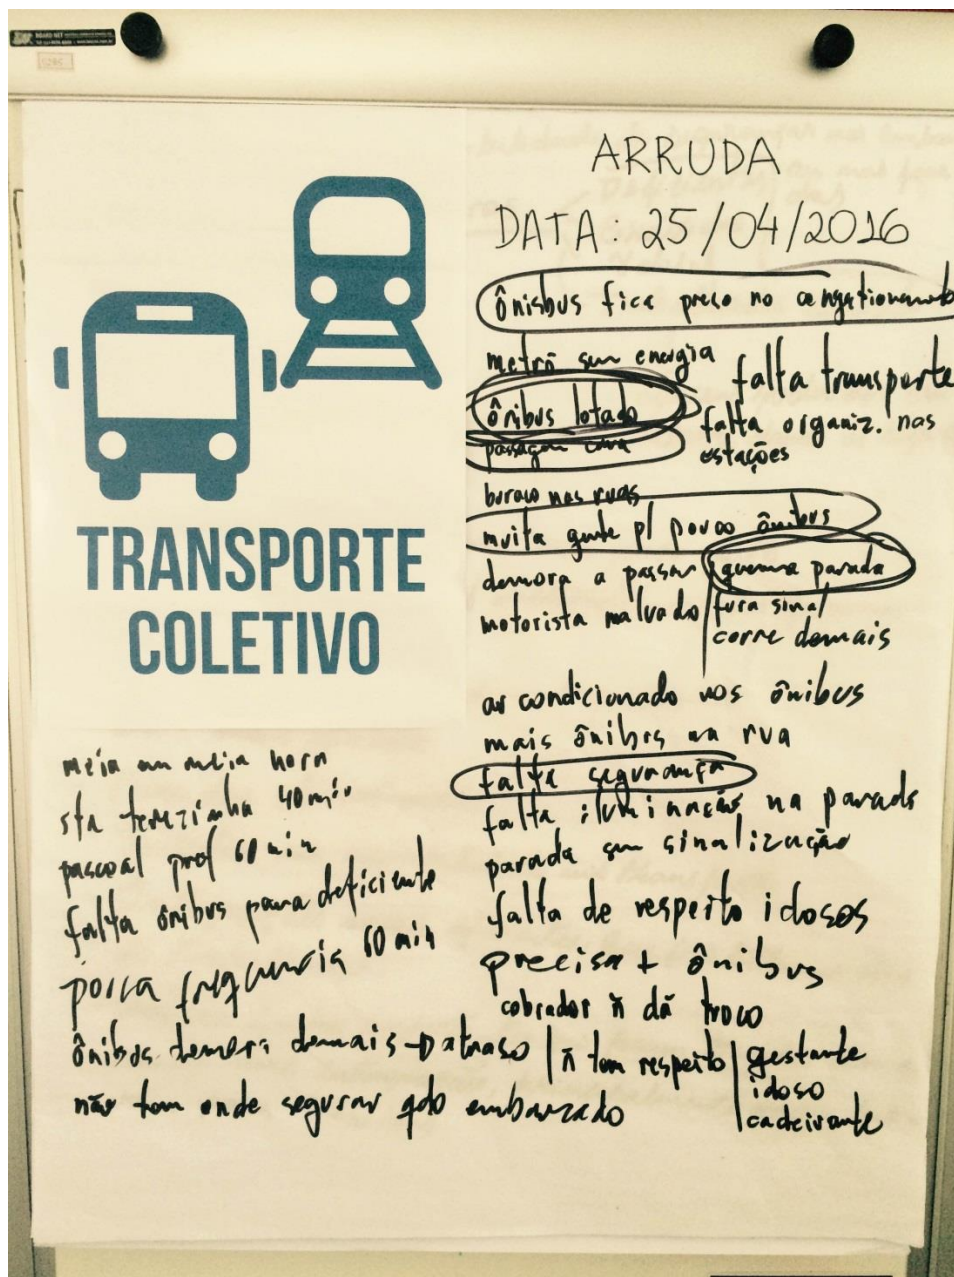 ARRUDA
DATA: 25/04/2016
ônisbus fica preso no congestionamento
metrô sem energia
falta transporte
ônibus lotado
falta organiz. nas
estações
passagem cara
buraco nas ruas
muita gente p/ pouco ônibus
demora a passar
queima parada
motorista malvado
fura sinal
corre demais
TRANSPORTE
COLETIVO
ar condicionado nos ônibus
mais ônibus na rua
falta segurança
falta iluminação na parada
parada sem sinalização
falta de respeito idosos
precisa + ônibus
cobrador ñ dá troco
meia em meia hora
sta terezinha 40 min
pascoal prof 60 min
falta ônibus para deficiente
pouca frequencia 60 min
ônibus demora demais → atraso
ñ tem respeito
gestante
idoso
cadeirante
não tem onde segurar qdo